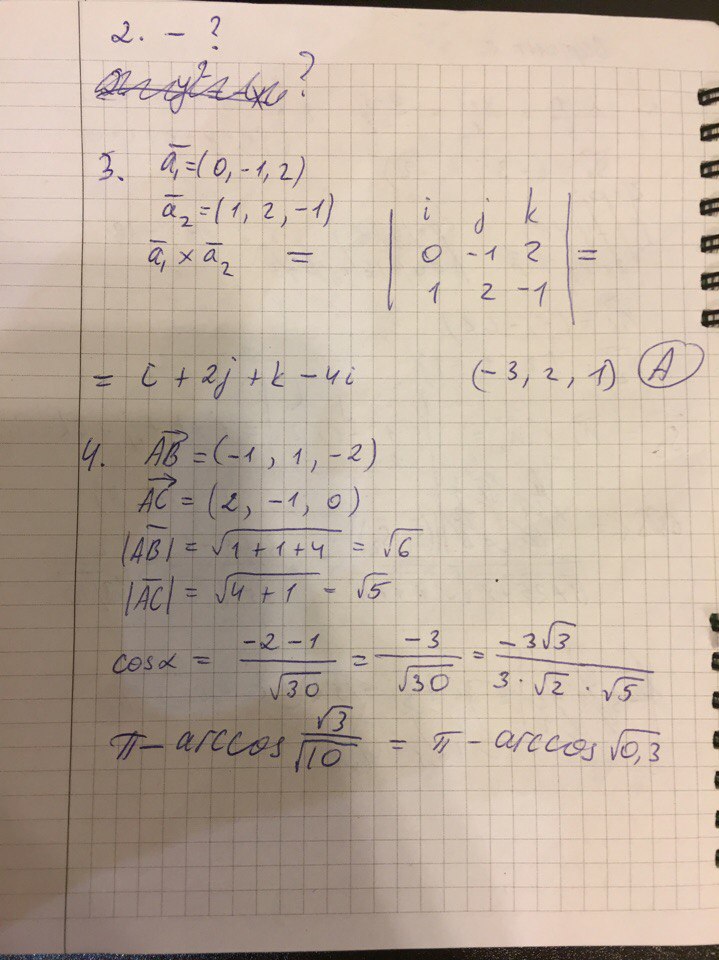 2. - ?
?
3. a̅₁ = (0, -1, 2)
a̅₂ = (1, 2, -1)
a̅₁ × a̅₂ = | i j k |
| 0 -1 2 | =
| 1 2 -1 |
= i + 2j + k - 4i (-3, 2, 1) A
4. AB = (-1, 1, -2)
AC = (2, -1, 0)
|AB| = √(1+1+4) = √6
|AC| = √(4+1) - √5
cosα = (-2-1)/√30 = -3/√30 = -3√3/(3·√2·√5)
π - arccos √3/√10 = π - arccos √0,3